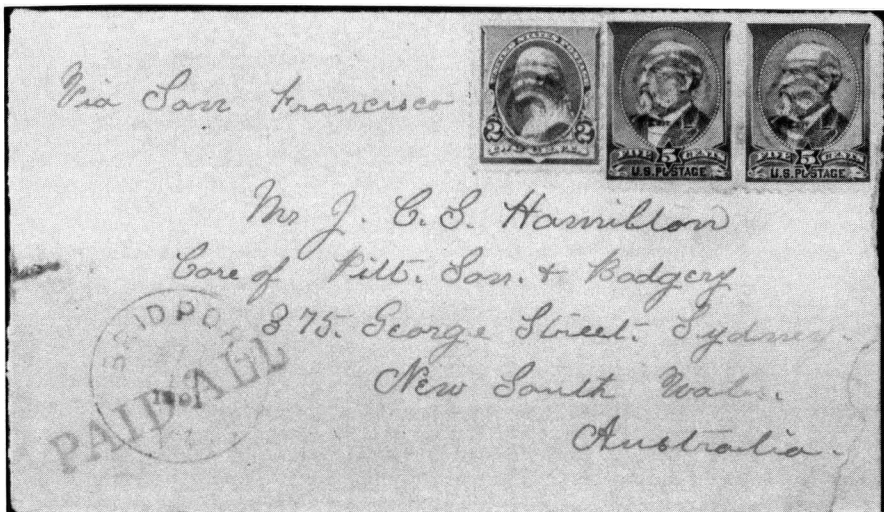 Via San Francisco
UNITED STATES POSTAGE
2 2
FIVE 5 CENTS
U.S. POSTAGE
FIVE 5 CENTS
U.S. POSTAGE
Mr J. C. S. Hamilton
Care of Pitt. Son. & Badgery
375. George Street. Sydney.
New South Wales.
Australia.
BRIDPOR
PAID ALL